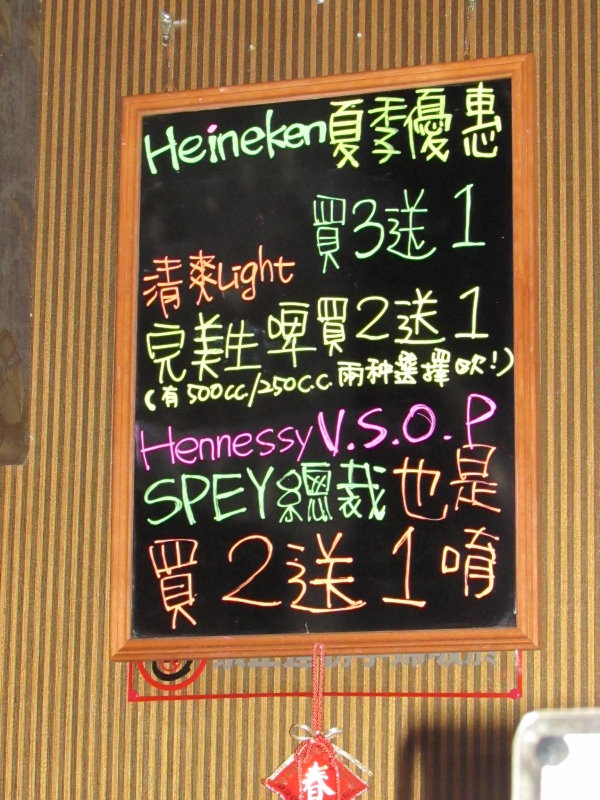 Heineken夏季優惠
買3送1
清爽Light
完美生啤買2送1
(有500c.c./250c.c.兩种選擇欧!)
Hennessy V.S.O.P
SPEY總裁也是
買2送1唷
春